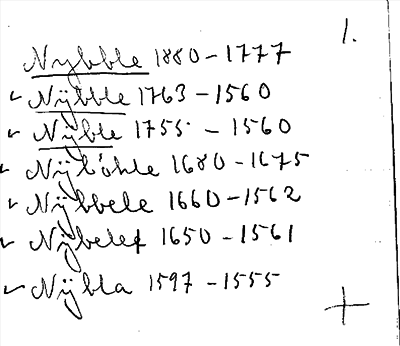 1.
Nybble 1880-1777
Nÿbble 1763-1560
Nÿble 1755-1560
Nÿbbele 1660-1562
1680-1675
Nÿbelef 1650-1561
Nÿbla 1597-1555